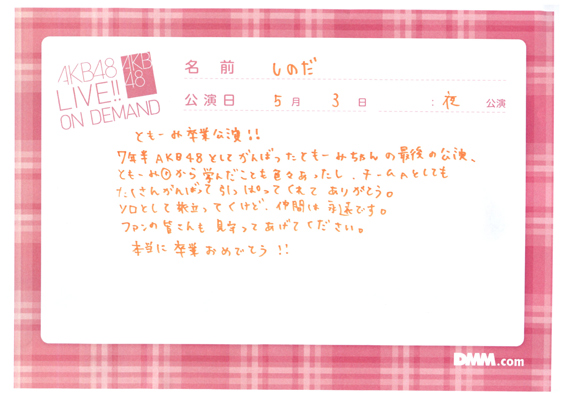 AKB48
LIVE!!
ON DEMAND
AKB
48
名 前 しのだ
公演日 5月 3日 : 夜 公演
ともーみ卒業公演!!
7年半AKB48としてがんばったともーみちゃんの最後の公演、
から学んだことも色々あったし、チームAとしても
たくさんがんばって引っぱってくれてありがとう。
ソロとして旅立ってくけど、仲間は永遠です。
ファンの皆さんも見守ってあげてください。
本当に卒業おめでとう!!
DMM.com